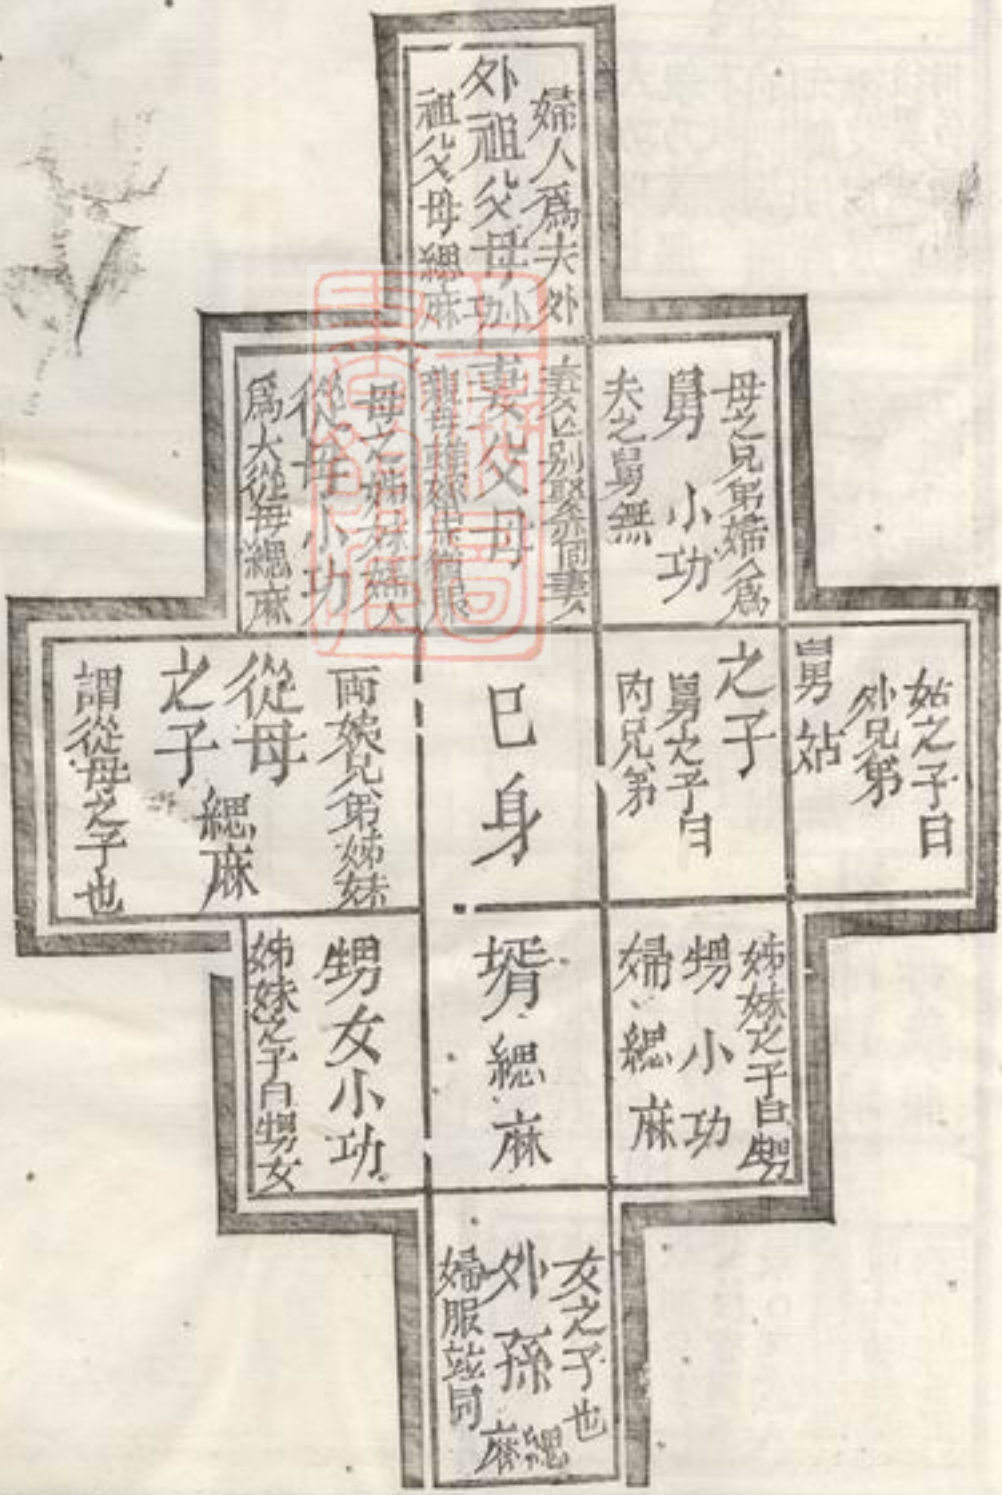 婦人爲夫外
外祖父母小功
祖父母緦麻
母之兄弟婦人爲
舅小功
夫之舅無
妻亡別娶亦同妻
妻父母
母之姊妹婦人
從母小功
爲夫從母緦麻
姑之子曰
外兄弟
舅姑
之子
舅之子曰
內兄弟
己身
兩姨兄弟姊妹
從母
之子
緦麻
謂從母之子也
姊妹之子曰甥
甥小功
婦緦麻
壻緦麻
甥女小功
姊妹之子曰甥女
女之子也
外孫緦麻
婦服並同